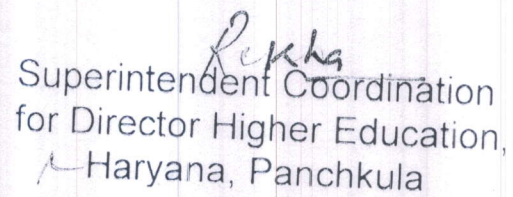 Rekha
Superintendent Coordination
for Director Higher Education,
Haryana, Panchkula